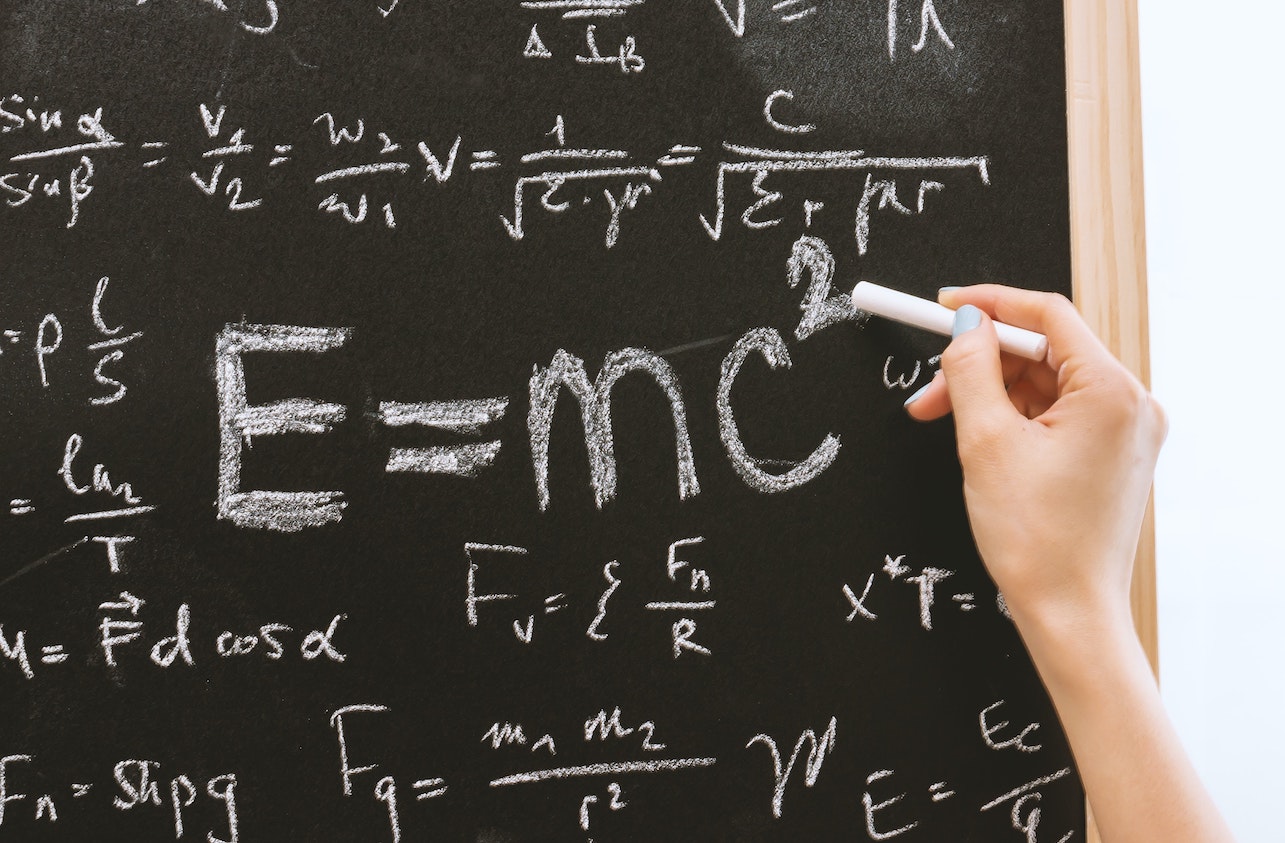 Δ I_B
sin α / sin β = v_1 / v_2 = w_2 / w_1 V = 1 / √(ε · μ) = c / √(ε_r μ_r)
= ρ l / S
E = mc²
w =
= ln_2 / T
F_v = { F_n / R
x* T =
M = F⃗ d cos α
F_n = Shρg
F_g = m_1 m_2 / r²
E = E_c / q